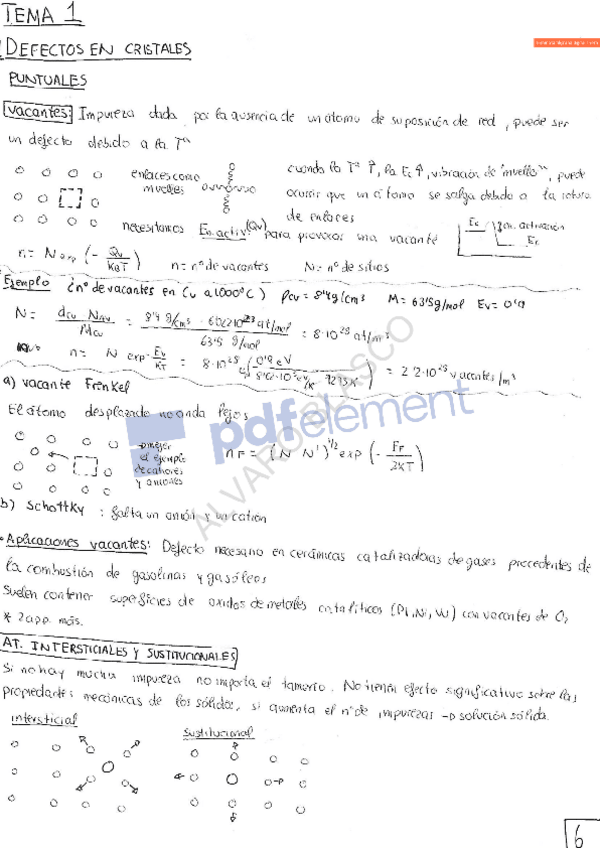 TEMA 1
DEFECTOS EN CRISTALES
PUNTUALES
Vacantes: Impureza dada por la ausencia de un átomo de su posición de red, puede ser
un defecto debido a la Tª
enlaces como
muelles
cuando la Tª ↑, la Ec ↑, vibración de "muelle", puede
ocurrir que un átomo se salga debido a la rotura
de enlaces
necesitamos En.activ (Qv) para provocar una vacante
n = N exp (- Qv / KBT) n = nº de vacantes N = nº de sitios
Ejemplo ¿nº de vacantes en Cu a 1000ºC) ρcu = 8'4 g/cm³ M = 63'5 g/mol Ev = 0'9
N = dcu NAV / Mcu = 8'4 g/cm³ · 6022·10²³ at/mol / 63'5 g/mol = 8·10²⁸ at/m³
n = N exp - Ev / KT = 8·10²⁸ = 2'2·10²⁵ vacantes/m³
a) vacante Frenkel
El átomo desplazado no anda lejos
mejor
el ejemplo
de cationes
y aniones
nF = (N N')^1/2 exp (- EF / 2KT)
b) Schottky: falta un anión y un catión
• Aplicaciones vacantes: Defecto necesario en cerámicas catalizadoras de gases precedentes de
la combustión de gasolinas y gasóleos
Suelen contener superficies de oxidos de metales catalíticos (Pt, Ni, W) con vacantes de O₂
* 2 app. más.
AT. INTERSTICIALES Y SUSTITUCIONALES
Si no hay mucha impureza no importa el tamaño. No tienen efecto significativo sobre las
propiedades mecánicas de los sólidos, si aumenta el nº de impurezas → solución sólida.
intersticial
Sustitucional
6
pdfelement
ALVARO BLASCO